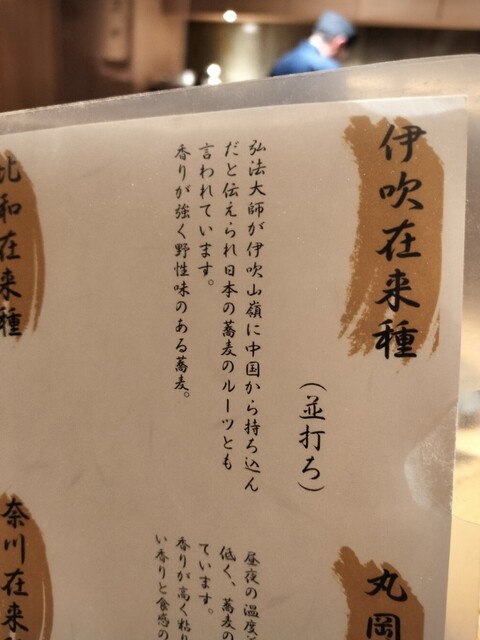 伊吹在来種
(並打ち)
弘法大師が伊吹山嶺に中国から持ち込ん
だと伝えられ日本の蕎麦のルーツとも
言われています。
香りが強く野性味のある蕎麦。
比和在来種
丸岡
昼夜の温度
低く、蕎麦の
ています。
香りが高く粘り
い香りと食感の
奈川在来